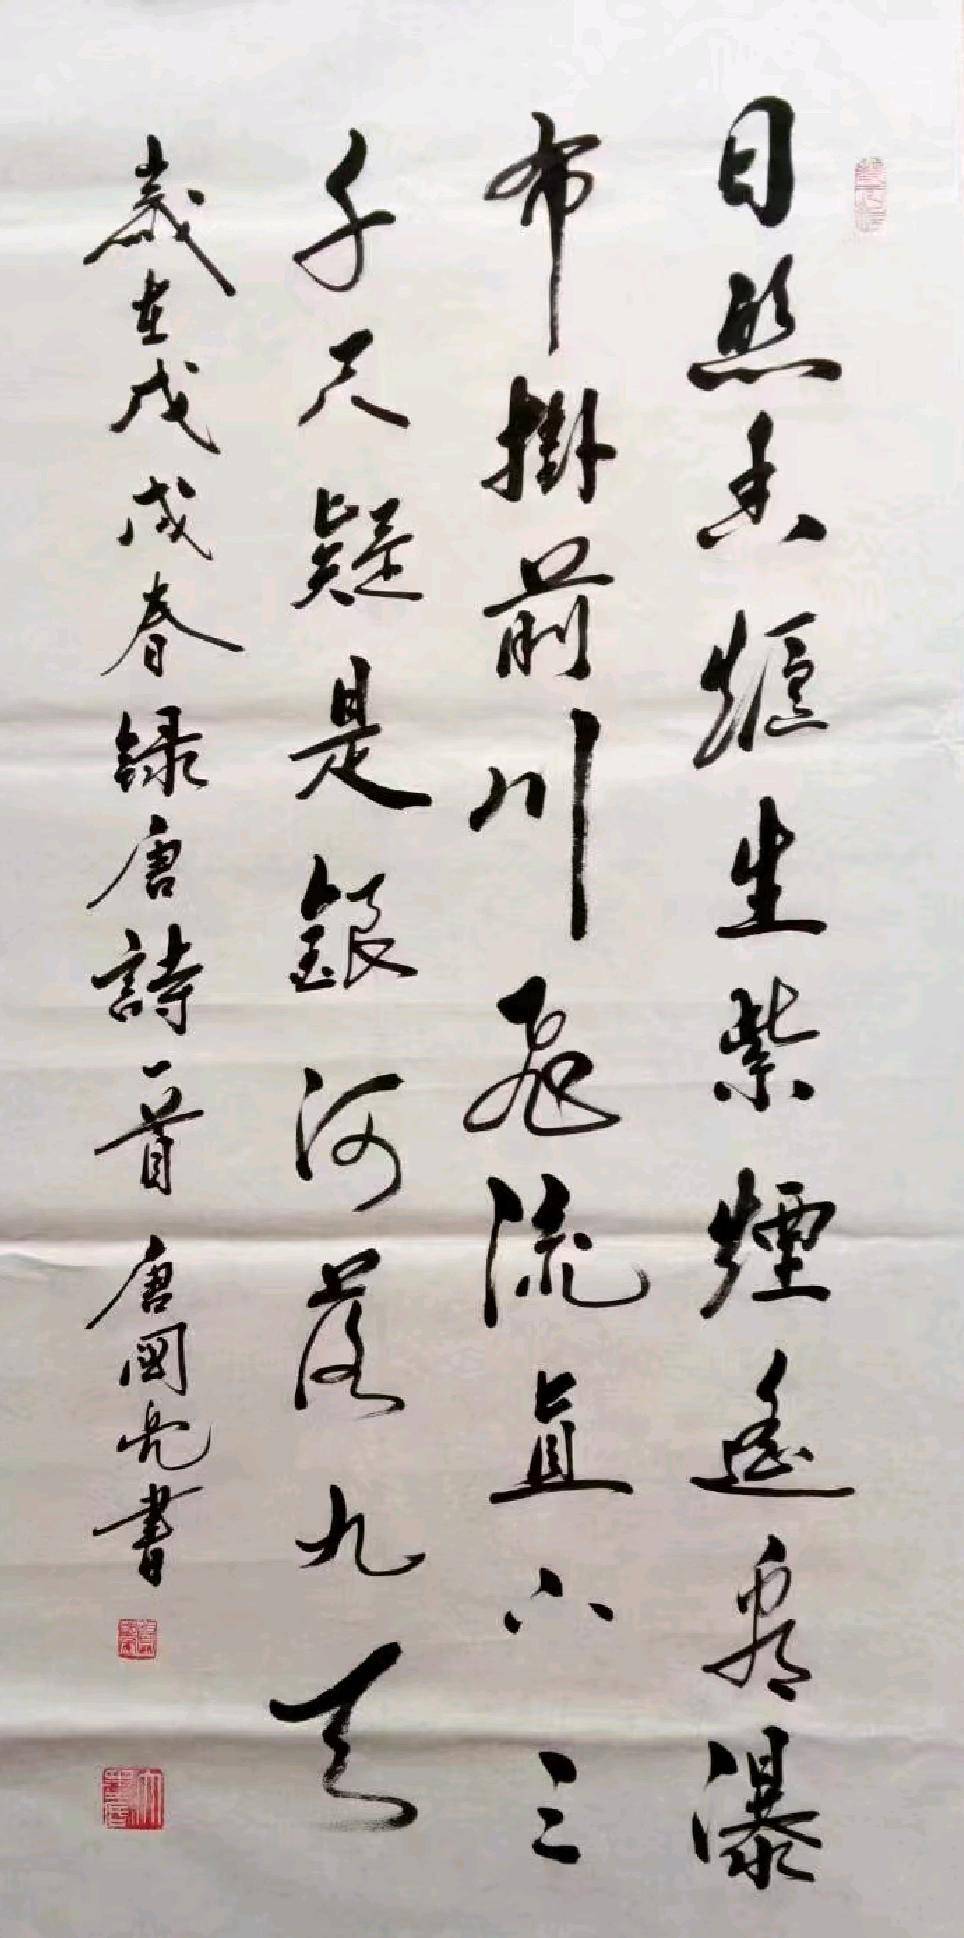 日照香爐生紫煙遙看瀑
布掛前川飛流直下三
千尺疑是銀河落九天
歲在戊戌春録唐詩一首 唐國亮書